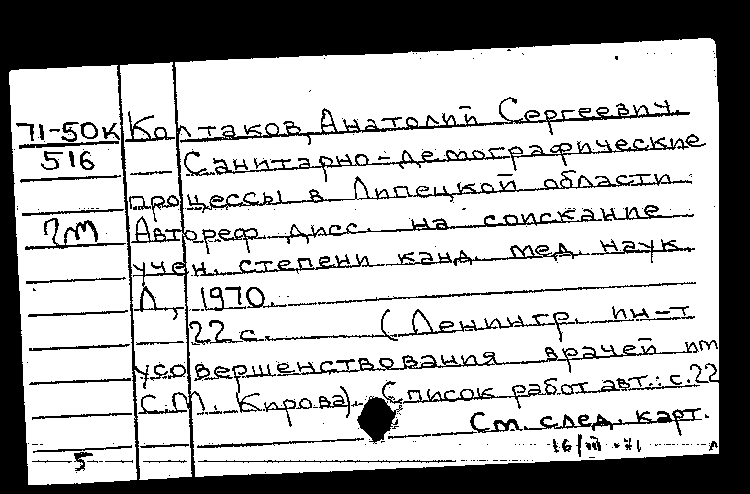 71-50к Колтаков, Анатолий Сергеевич.
516 Санитарно-демографические
процессы в Липецкой области
Автореф. дисс. на соискание
учен. степени канд. мед. наук.
Л., 1970.
22 с. (Ленингр. ин-т
усовершенствования врачей им.
С.М. Кирова). Список работ авт.: с.22
См. след. карт.
5 16/III-71